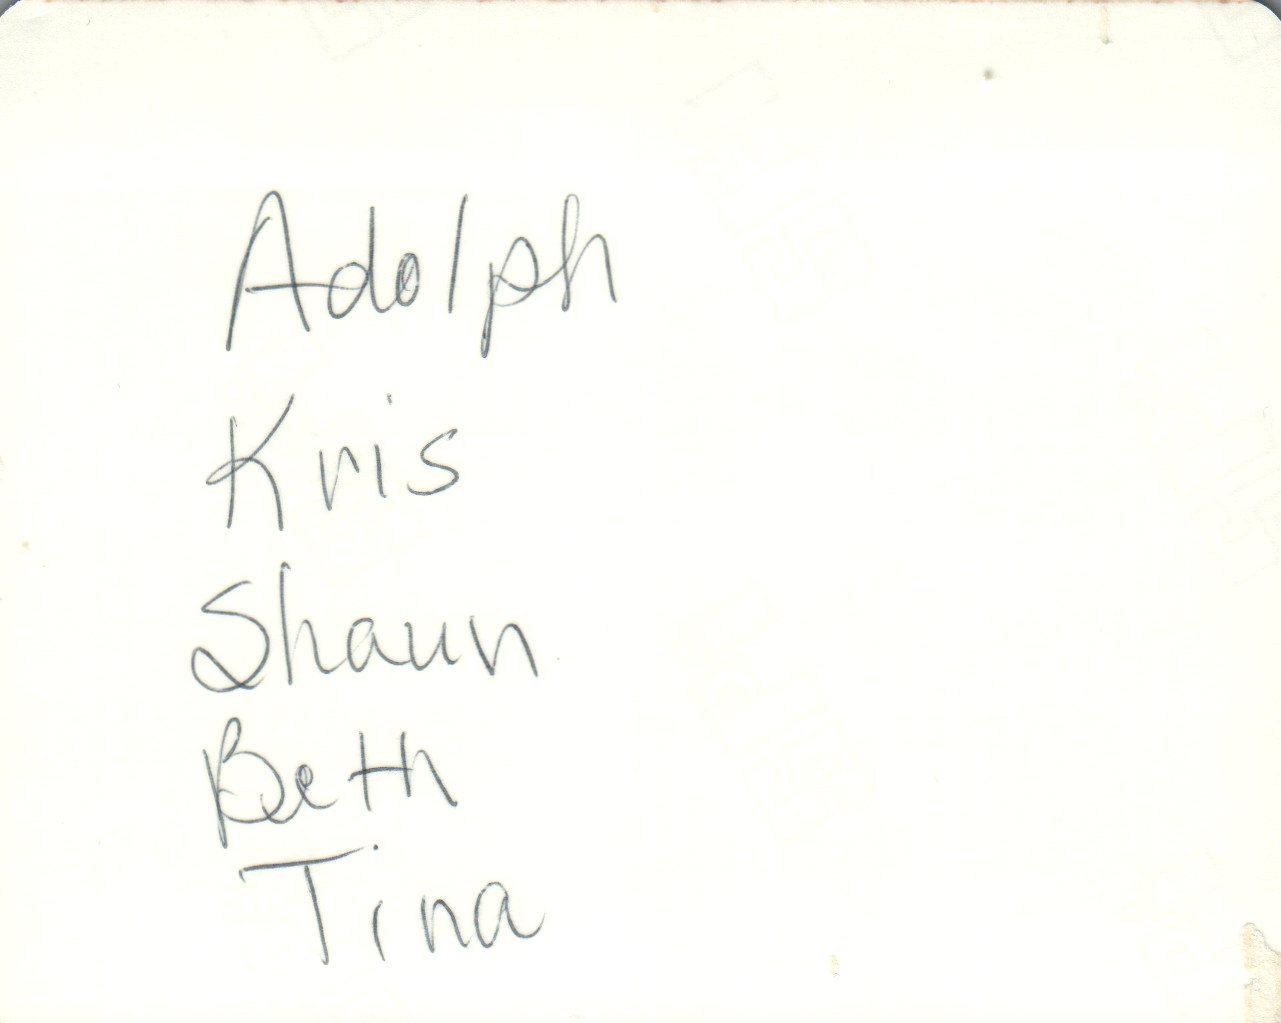 Adolph
Kris
Shaun
Beth
Tina